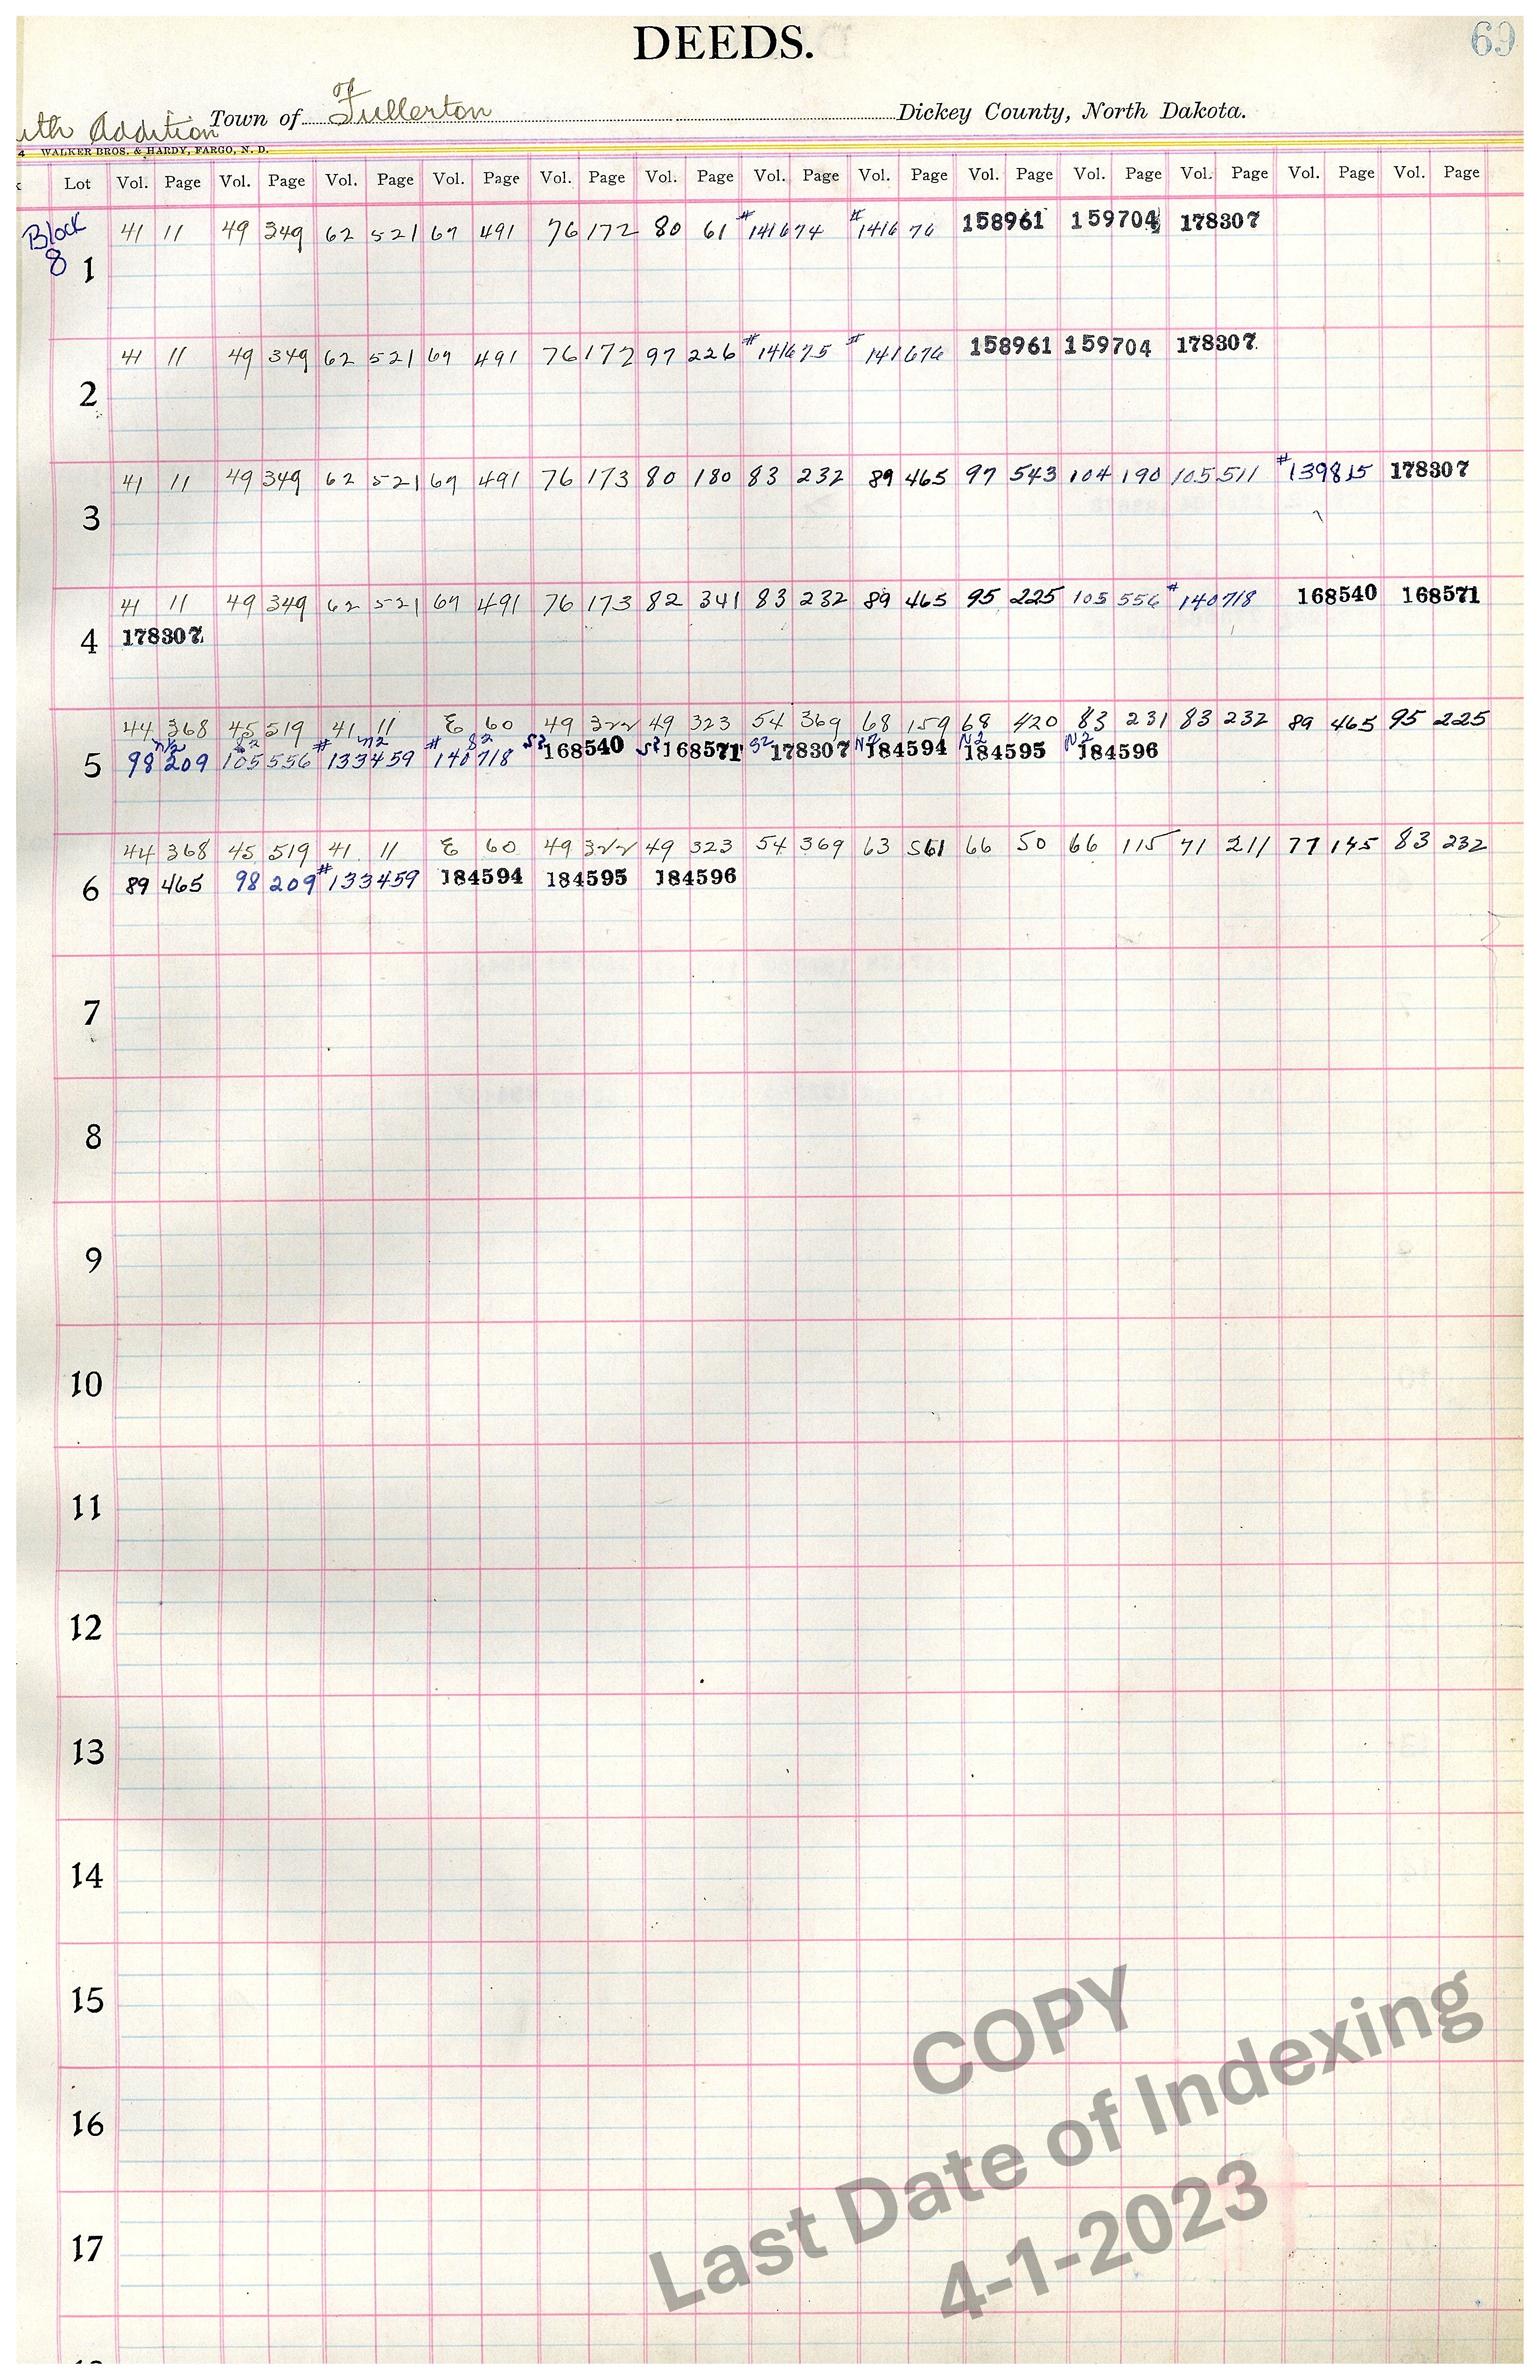 DEEDS.
69
uth Addition Town of of Fullerton Dickey County, North Dakota.
4 WALKER BROS. & HARDY, FARGO, N. D.
Lot Vol. Page Vol. Page Vol. Page Vol. Page Vol. Page Vol. Page Vol. Page Vol. Page Vol. Page Vol. Page Vol. Page Vol. Page Vol. Page
Block 41 11 49 349 62 521 67 491 76 172 80 61 #141674 #141676 158961 159704 178307
8 1
41 11 49 349 62 521 67 491 76 172 97 226 #141675 #141676 158961 159704 178307
2
41 11 49 349 62 521 67 491 76 173 80 180 83 232 89 465 97 543 104 190 105 511 #139815 178307
3
41 11 49 349 62 521 67 491 76 173 82 341 83 232 89 465 95 225 105 556 #140718 168540 168571
4 178307
44 368 45 519 41 11 E 60 49 322 49 323 54 369 68 159 68 420 83 231 83 232 89 465 95 225
N2 S2 N2 S2 S2 S2 S2 N2 N2 N2
5 98 209 105 556 #133459 #140718 168540 168571 178307 184594 184595 184596
44 368 45 519 41 11 E 60 49 322 49 323 54 369 63 561 66 50 66 115 71 211 77 145 83 232
6 89 465 98 209 #133459 184594 184595 184596
7
8
9
10
11
12
13
14
15
16
17
COPY
Last Date of Indexing
4-1-2023